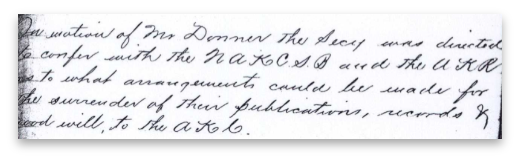 On motion of Mr Donner the Secy was directed
to confer with the N A K C S B and the A K R
as to what arrangements could be made for
the surrender of their publications, records &
good will, to the A K C.